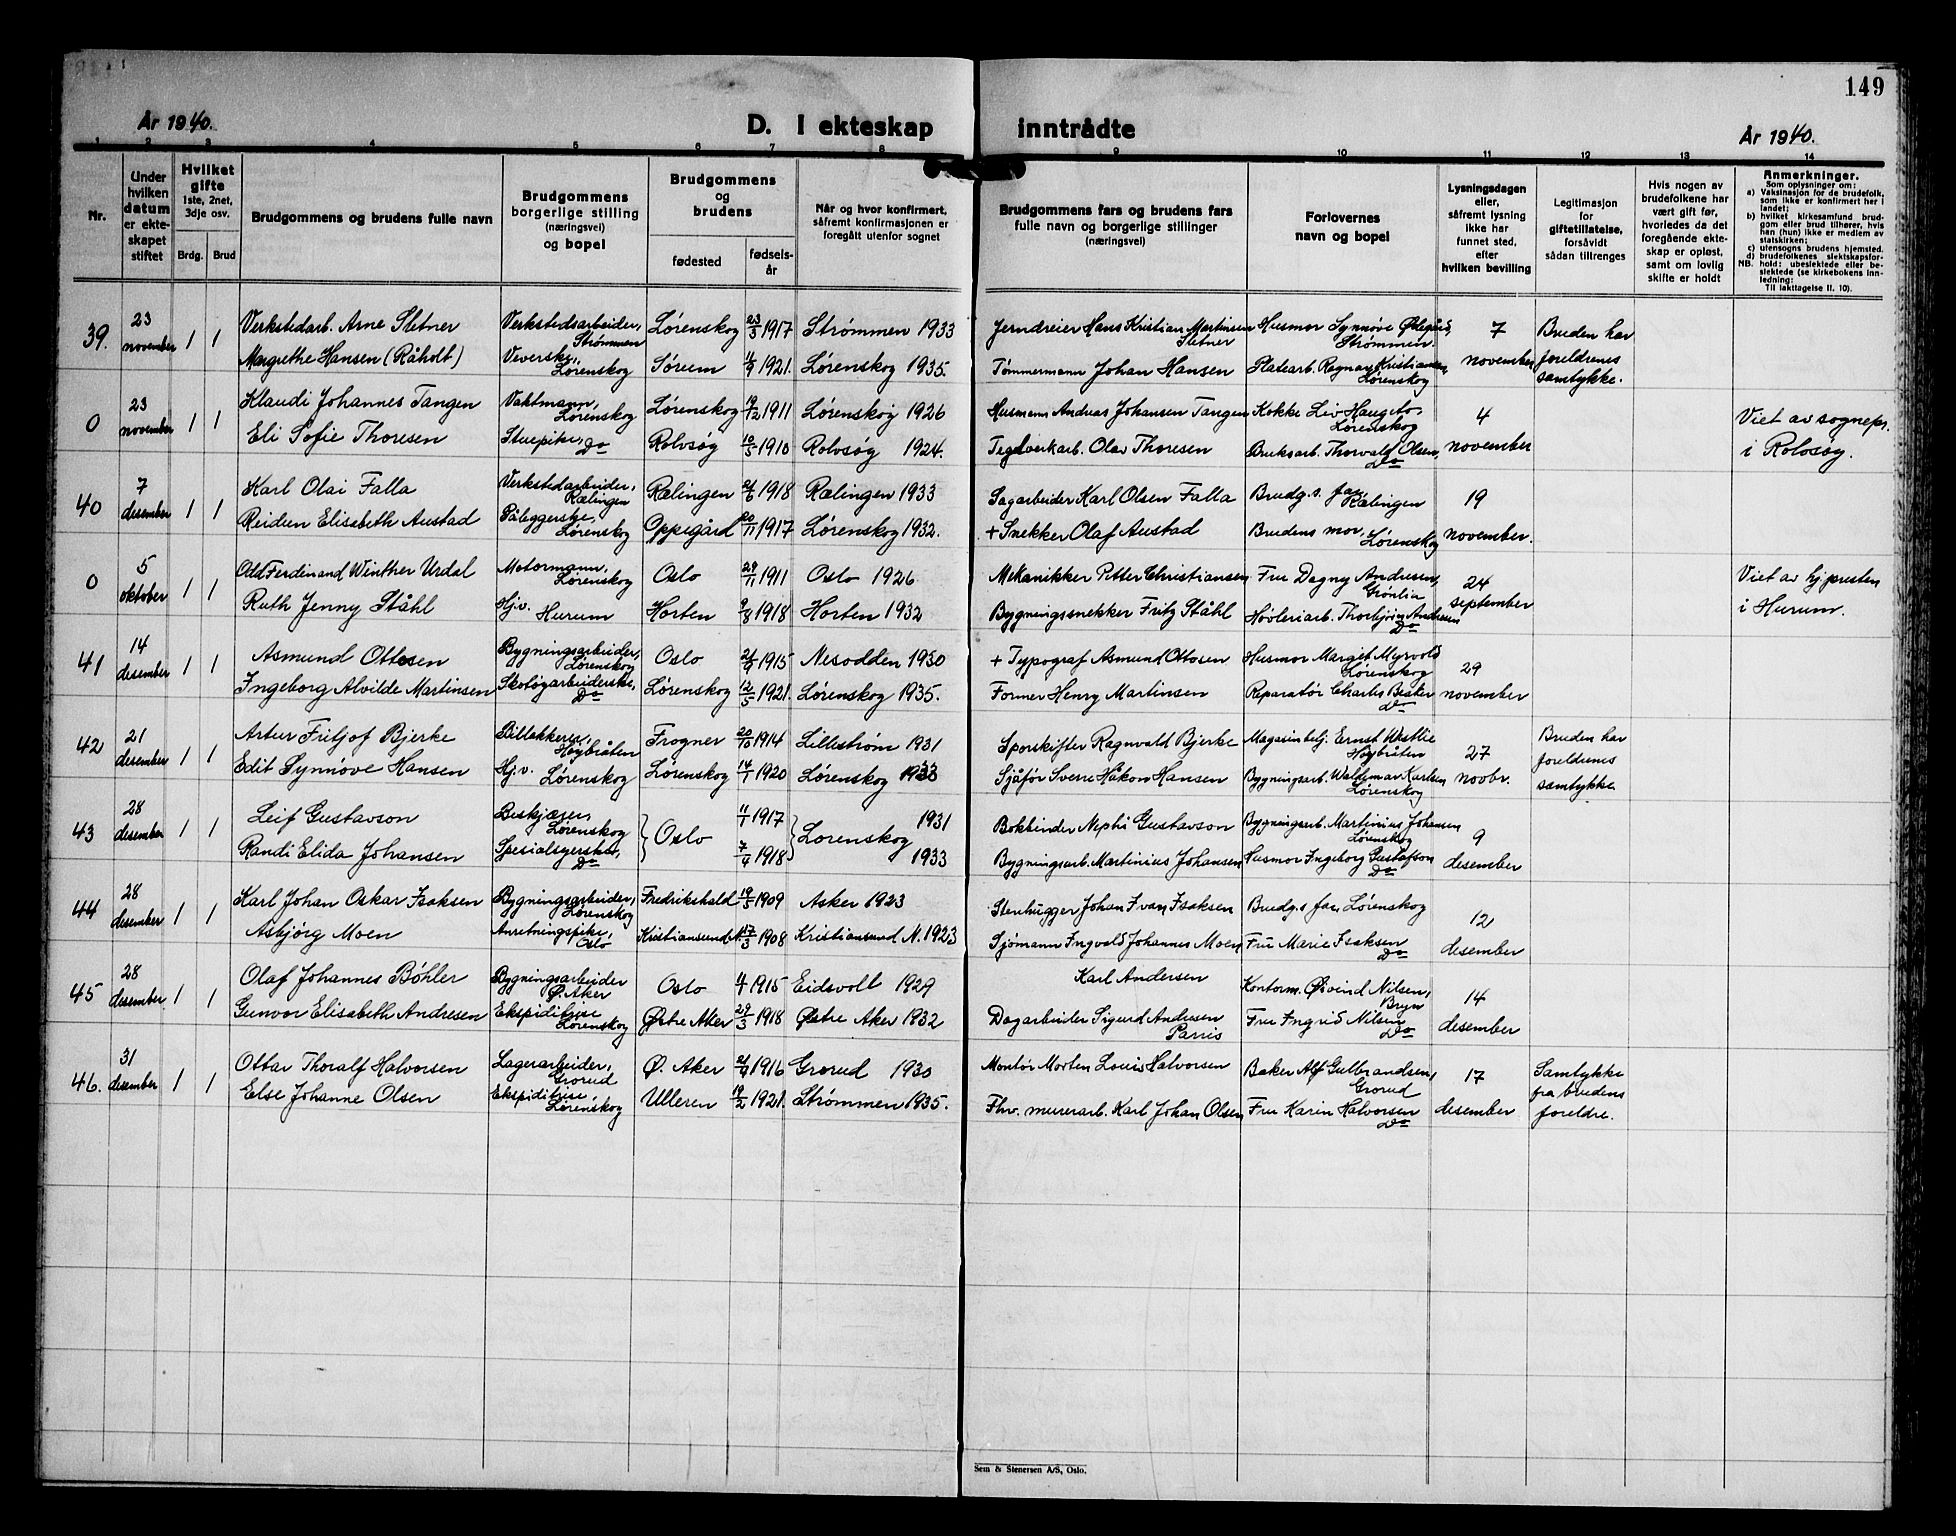 149
År 1940.
D. I ekteskap inntrådte
År 1940.
1 2 3 4 5 6 7 8 9 10 11 12 13 14
Nr.
Under hvilken datum er ekteskapet stiftet
Hvilket gifte 1ste, 2net, 3dje osv.
Brdg. Brud
Brudgommens og brudens fulle navn
Brudgommens borgerlige stilling (næringsvei) og bopel
Brudgommens og brudens
fødested
fødselsår
Når og hvor konfirmert, såfremt konfirmasjonen er foregått utenfor sognet
Brudgommens fars og brudens fars fulle navn og borgerlige stillinger (næringsvei)
Forlovernes navn og bopel
Lysningsdagen eller, såfremt lysning ikke har funnet sted, efter hvilken bevilling
Legitimasjon for giftetillatelse, forsåvidt sådan tiltrenges
Hvis nogen av brudefolkene har vært gift før, hvorledes da det foregående ekteskap er opløst, samt om lovlig skifte er holdt
Anmerkninger.
Som oplysninger om:
a) Vaksinasjon for de brudefolk, som ikke er konfirmert her i landet;
b) hvilket kirkesamfund brudgom eller brud tilhører, hvis han (hun) ikke er medlem av statskirken;
c) utensogns brudens hjemsted.
d) brudefolkenes slektskapsforhold: ubeslektede eller beslektede (se kirkebokens innledning:
NB. Til iakttagelse II. 10).
39. 23 november 1 1 Verkstedarb. Arne Sletner Verkstedsarbeider, Strømmen Lørenskog 23/3 1917 Strømmen 1933 Jerndreier Hans Kristian Martinsen Sletner Husmor Synnøve Ødegård, Strømmen. 7 november Bruden har foreldrenes samtykke.
Margrethe Hansen (Råholt) Veverske, Lørenskog Sørum 1921. Lørenskog 1935. Tømmermann Johan Hansen Platearb. Ragnar Kristiansen Lørenskog
0 23 november 1 1 Klaudi Johannes Tangen Vaktmann, Lørenskog Lørenskog 19/12 1911 Lørenskog 1926 Husmann Andreas Johansen Tangen Kokke Liv Haugsto, Lørenskog 4 november Viet av sognepr. i Rolvsøy.
Eli Sofie Thoresen Stuepike, Do Rolvsøy 10/5 1910 Rolvsøy 1924. Teglverkarb. Olav Thoresen Bruksarb. Thorvald Olsen, Do
40 7 desember 1 1 Karl Olai Falla Verkstedarbeider, Rælingen Rælingen 1918 Rælingen 1933 Sagarbeider Karl Olsen Falla Brudg.s far Rælingen 19 november.
Reidun Elisabeth Austad Påleggerske, Lørenskog Oppegård 20/11 1917 Lørenskog 1932. + Snekker Olaf Austad Brudens mor, Lørenskog
0 5 oktober 1 1 Odd Ferdinand Winther Urdal Motormann, Lørenskog Oslo 29/11 1911 Oslo 1926 Mekanikker Petter Christiansen Fru Dagny Andresen, Grønlia 24 september Viet av hj.presten i Hurum.
Ruth Jenny Ståhl Hj.v. Hurum Horten 9/8 1918 Horten 1932 Bygningssnekker Fritz Ståhl Høvleriarb. Thorbjørn Andresen Do
41 14 desember 1 1 Asmund Ottesen Bygningsarbeider, Lørenskog Oslo 1915 Nesodden 1930 + Typograf Asmund Ottosen Husmor Margit Myrvold Lørenskog 29 november
Ingeborg Alvilde Martinsen Skotøyarbeiderske, Do Lørenskog 12/5 1921. Lørenskog 1935. Former Henry Martinsen Reparatør Charles Do
42 21 desember 1 1 Artur Fritjof Bjerke Billakkerer, Høybråten Frogner 20/10 1914 Lillestrøm 1931 Sporskifter Ragnvald Bjerke Magasinbetj. Ernst Westlie Høybråten 27 novbr. Bruden har foreldrenes samtykke
Edit Synnøve Hansen Hj.v. Lørenskog Lørenskog 14/1 1920 Lørenskog 1933 Sjåfør Sverre Håkon Hansen Bygningsarb. Waldemar Karlsen Lørenskog
43 28 desember 1 1 Leif Gustavson Beskjæser, Lørenskog Oslo 11/1 1917 Lørenskog 1931 Bokbinder Nephi Gustavson Bygningsarb. Martinius Johansen Lørenskog 9 desember
Randi Elida Johansen Spesialsyerske, Do 7/4 1918 1933 Bygningsarb. Martinius Johansen Husmor Ingeborg Gustafson Do
44 28 desember 1 1 Karl Johan Oskar Isaksen Bygningsarbeider, Lørenskog Fredrikshald 19/5 1909 Asker 1923 Stenhugger Johan Ivan Isaksen Brudg.s far, Lørenskog 12 desember
Asbjørg Moen Anretningspike, Oslo Kristiansund N. 17/3 1908 Kristiansund N. 1923 Sjømann Ingvald Johannes Moen Fru Marie Isaksen Do
45 28 desember 1 1 Olaf Johannes Bøhler Bygningsarbeider Ø. Aker Oslo 1915 Eidsvoll 1929 Karl Andersen Kontorm. Øivind Nilsen, Bryn 14 desember
Gunvor Elisabeth Andresen Ekspeditrise Lørenskog Østre Aker 29/3 1918 Østre Aker 1932 Dagarbeider Sigurd Andresen Parris Fru Ingrid Nilsen Do
46. 31 desember 1 1 Ottar Thoralf Halvorsen Lagerarbeider, Grorud Ø. Aker 1916 Grorud 1930 Montør Morten Louis Halvorsen Baker Alf Gulbrandsen, Grorud 17 desember Samtykke fra brudens foreldre.
Else Johanne Olsen Ekspeditrise Lørenskog Ulleren 19/2 1921. Strømmen 1935. Fhv. murerarb. Karl Johan Olsen Fru Karin Halvorsen Do
Sem & Stenersen A/S, Oslo.